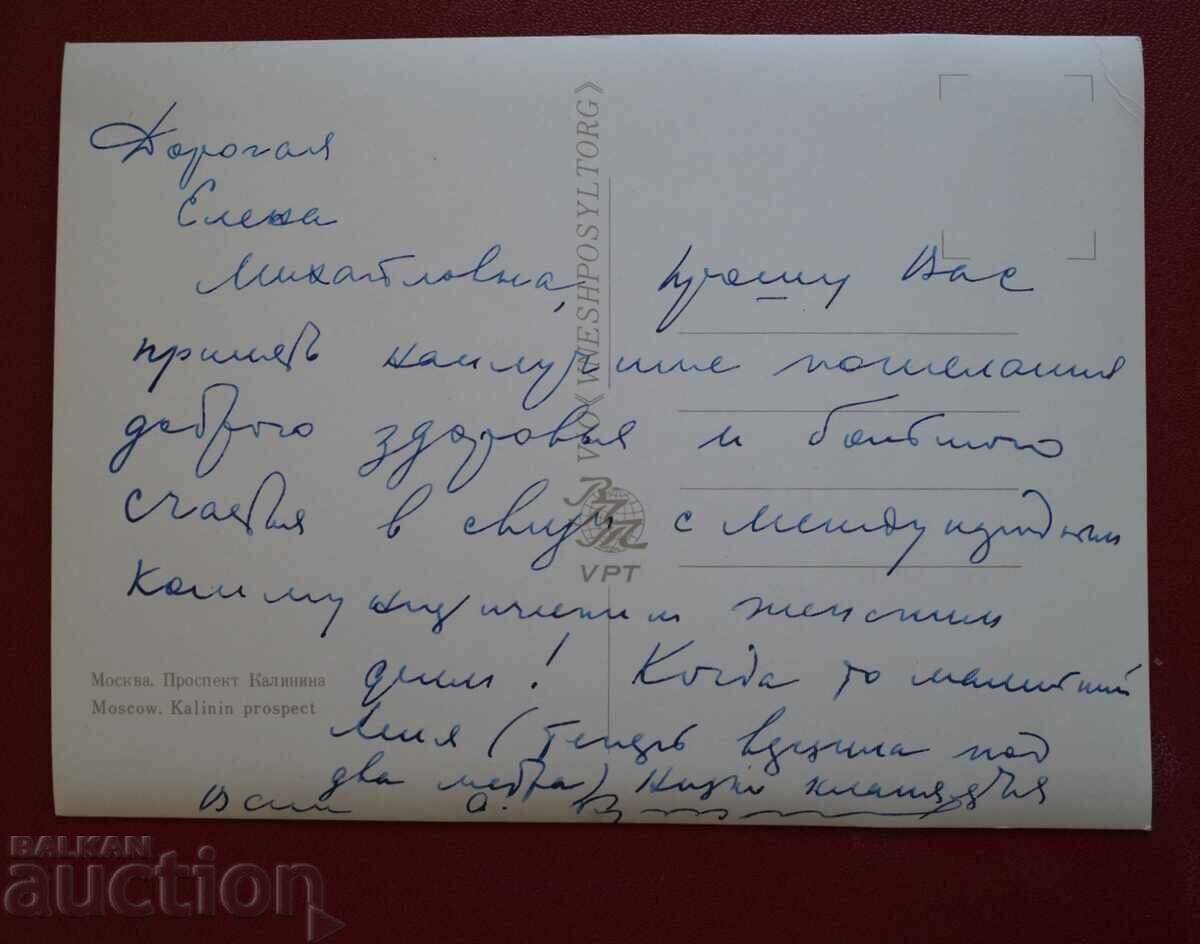 Дорогая
Елена
Михайловна, прошу Вас
принять наилучшие пожелания
доброго здоровья и большого
счастья в связи с международным
коммунистическим женским
днем! Когда то маленький
Лиля (теперь верзила под
два метра) низко кланяется
Вам А.
V/O «VNESHPOSYLTORG»
ВПТ
VPT
Москва. Проспект Калинина
Moscow. Kalinin prospect
BALKAN
auction